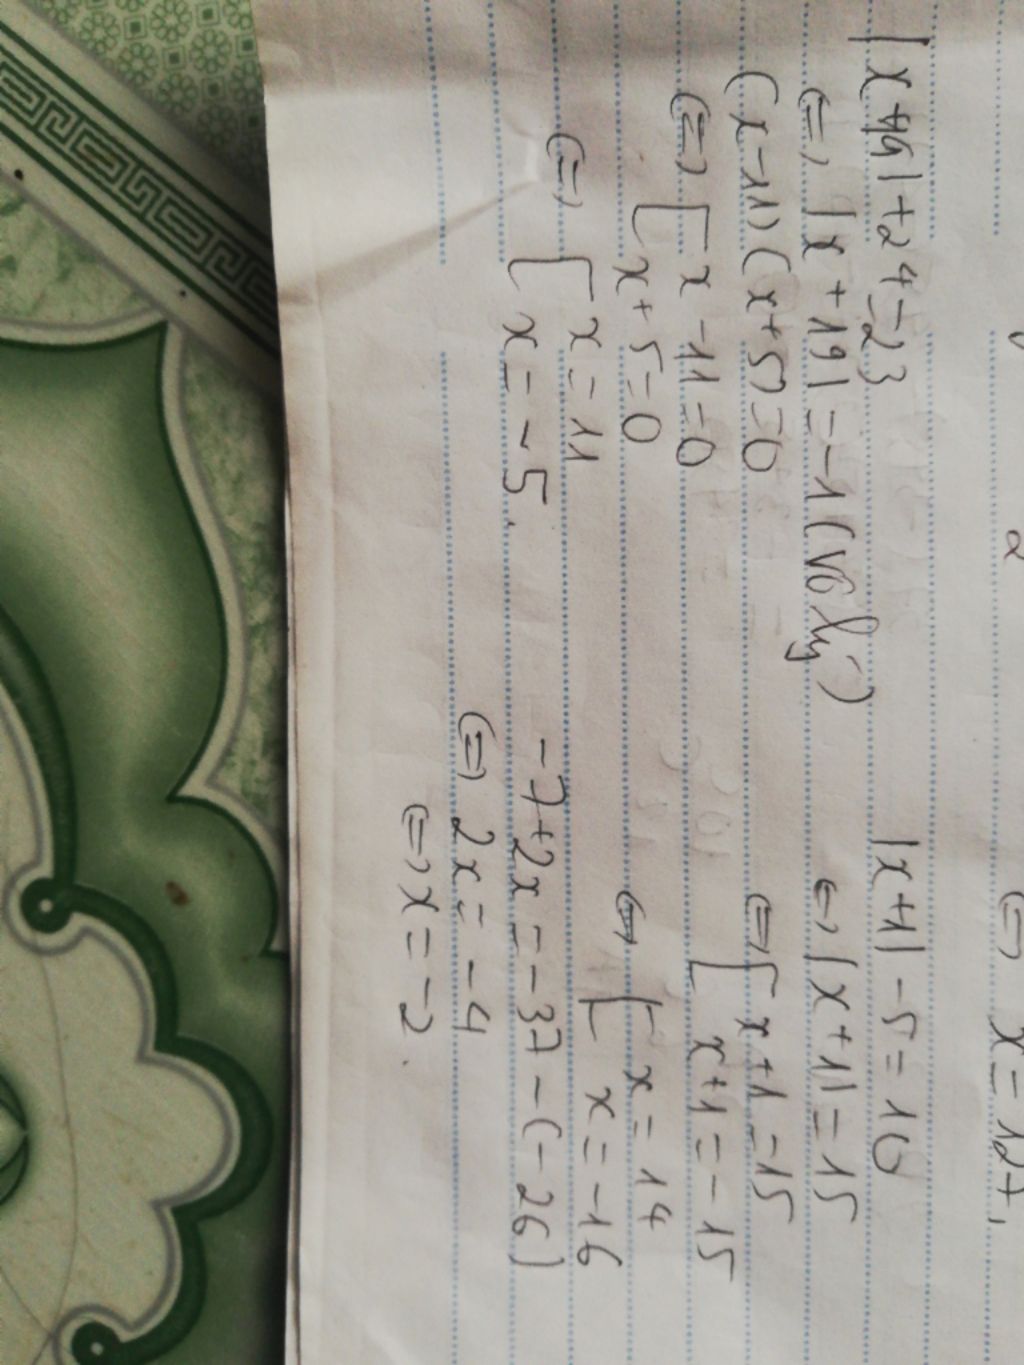 ⇔ x = 127,
|x+19| + 24 = 23
⇔ |x + 19| = -1 (vô lý)
(x - 11)(x + 5) = 0
⇔ [ x - 11 = 0
[ x + 5 = 0
⇔ [ x = 11
[ x = - 5.
|x+1| - 5 = 10
⇔ |x + 1| = 15
⇔ [ x + 1 = 15
[ x + 1 = - 15
⇔ [ x = 14
[ x = - 16
- 7 + 2x = - 37 - (- 26)
⇔ 2x = - 4
⇔ x = - 2.